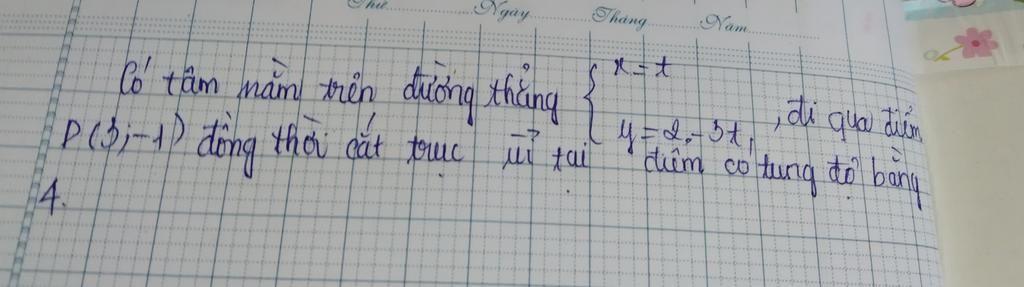 Thứ Ngày Tháng Năm
Có tâm nằm trên đường thẳng { x = t
y = 2 - 3t, , đi qua điểm
P(3;-1) đồng thời cắt trục tại điểm có tung độ bằng
4.